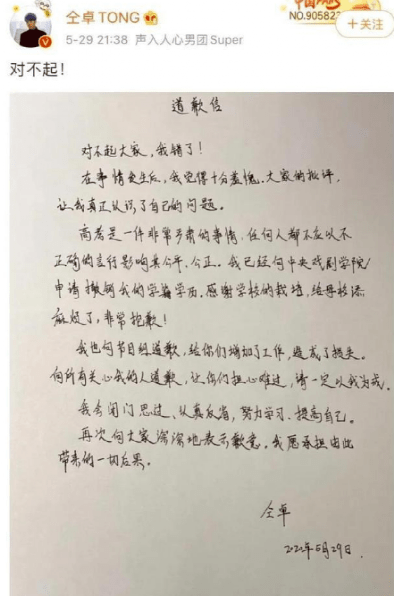 仝卓TONG
5-29 21:38 声入人心男团Super
NO.90582
+关注
对不起！
道歉信
对不起大家，我错了！
在事情发生后，我觉得十分羞愧。大家的批评，
让我真正认识了自己的问题。
高考是一件非常严肃的事情，任何人都不应以不
正确的言行影响其公平、公正。我已经向中央戏剧学院
申请撤销我的学籍学历。感谢学校的栽培，给母校添
麻烦了，非常抱歉！
我也向节目组道歉，给你们增加了工作，造成了损失。
向所有关心我的人道歉，让你们担心难过，请一定以我为戒。
我会闭门思过、认真反省，努力学习、提高自己。
再次向大家深深地表示歉意。我愿承担由此
带来的一切后果。
仝卓
2020年5月29日.